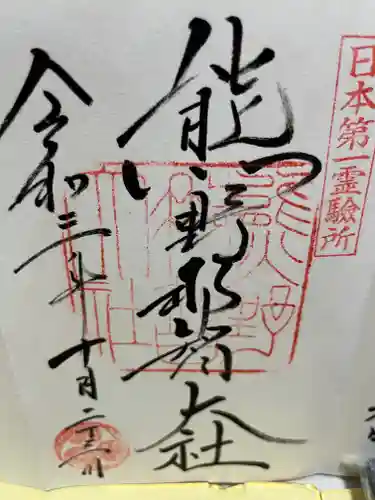 日本第一霊驗所
熊野那智大社
令和二年十月二十三日